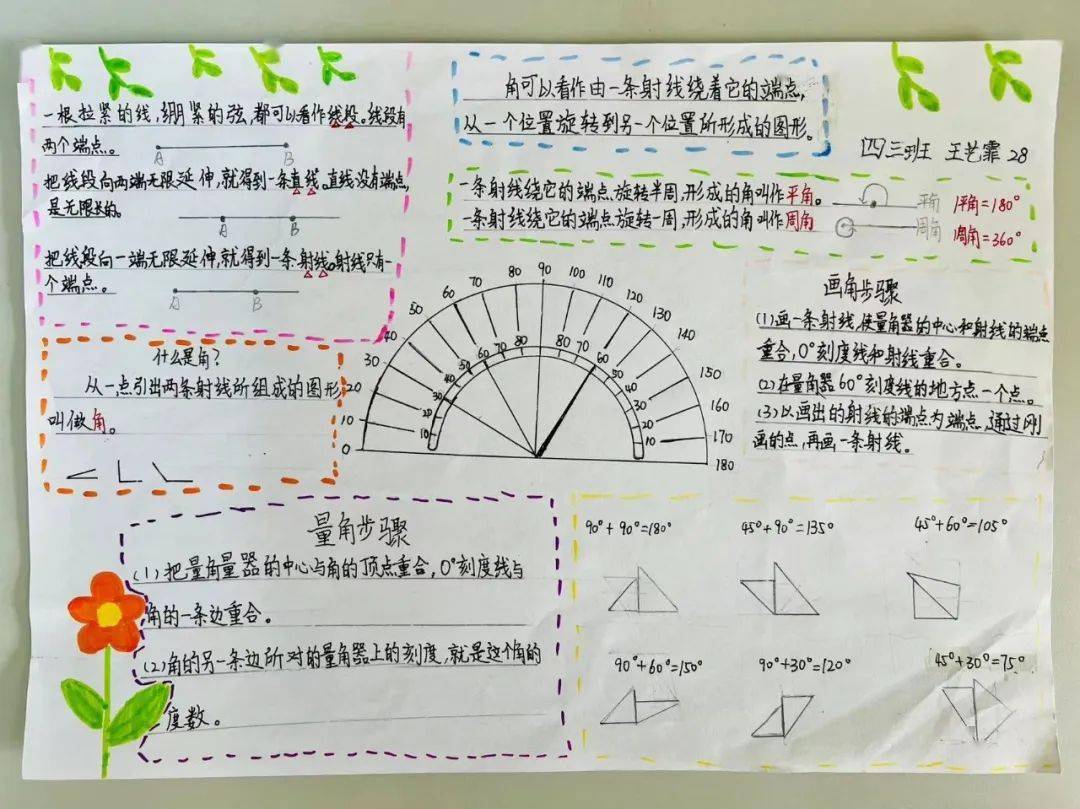 一根拉紧的线,绷紧的弦,都可以看作线段。线段有
两个端点。
A B
把线段向两端无限延伸,就得到一条直线。直线没有端点,
是无限长的。
A B
把线段向一端无限延伸,就得到一条射线。射线只有一
个端点。
A B
角可以看作由一条射线绕着它的端点,
从一个位置旋转到另一个位置所形成的图形。
四三班 王艺霏 28
一条射线绕它的端点旋转半周,形成的角叫作平角。
一条射线绕它的端点旋转一周,形成的角叫作周角
平角 1平角=180°
周角 1周角=360°
什么是角?
从一点引出两条射线所组成的图形
叫做角。
0 10 20 30 40 50 60 70 80 90 100 110 120 130 140 150 160 170 180
10 20 30 40 50 60 70 80 80 70 60 50 40 30 20 10
画角步骤
(1)画一条射线,使量角器的中心和射线的端点
重合,0°刻度线和射线重合。
(2)在量角器60°刻度线的地方点一个点。
(3)以画出的射线的端点为端点,通过刚
画的点,再画一条射线。
量角步骤
(1)把量角量器的中心与角的顶点重合,0°刻度线与
角的一条边重合。
(2)角的另一条边所对的量角器上的刻度,就是这个角的
度数。
90°+90°=180° 45°+90°=135° 45°+60°=105°
90°+60°=150° 90°+30°=120° 45°+30°=75°